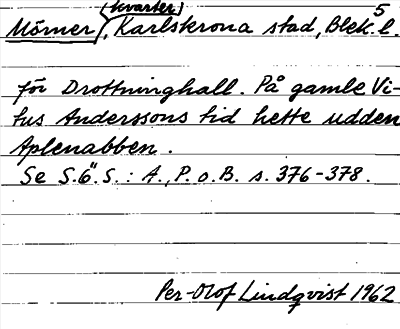 (kvarter)
Mörner, Karlskrona stad, Blek. l.
5
för Drottninghall. På gamle Vi-
tus Anderssons tid hette udden
Aplenabben.
Se S.ö.S.: A., P.o.B. s. 376-378.
Per-Olof Lindqvist 1962